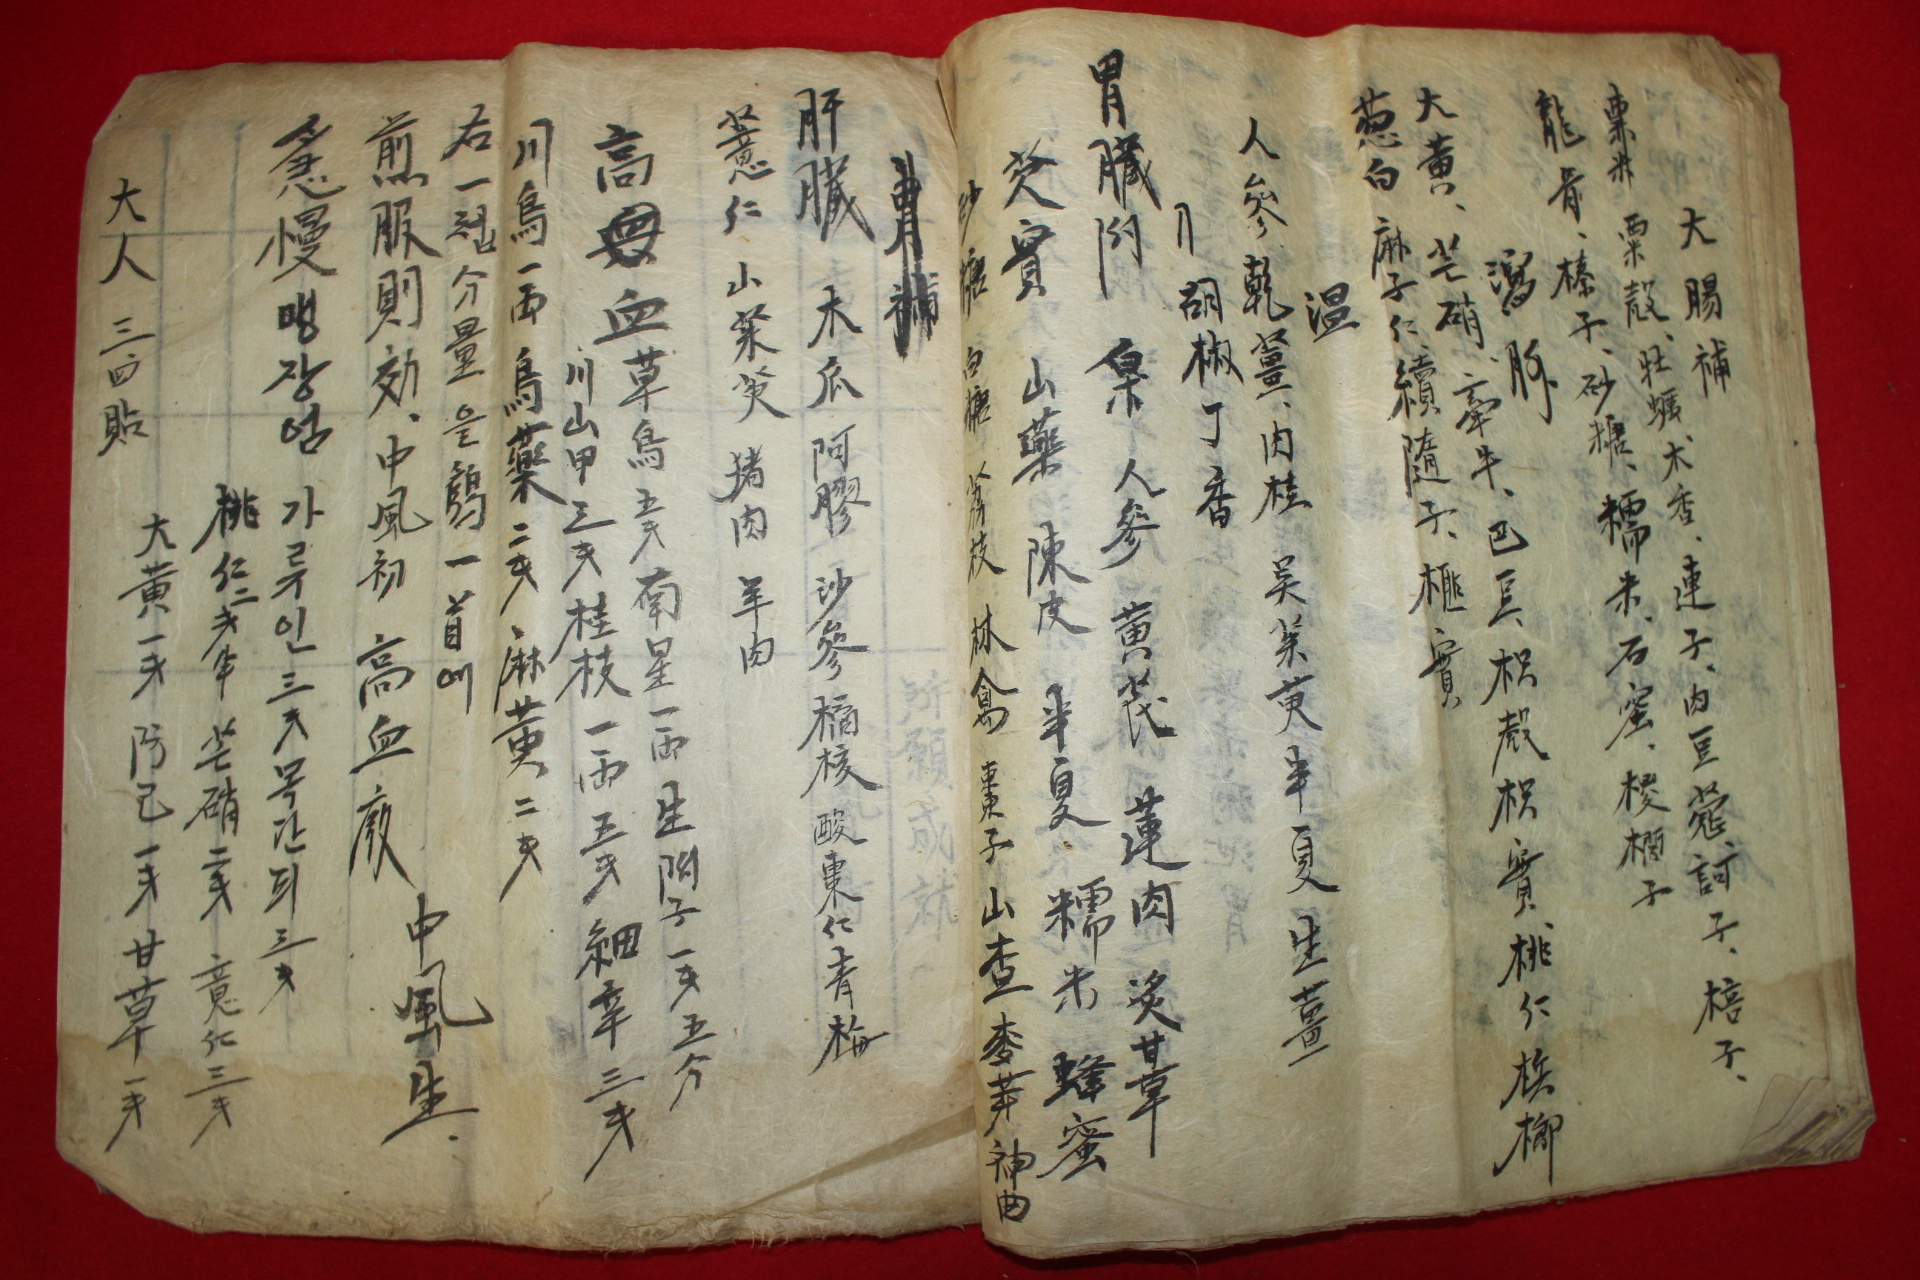 大腸補
粟米 粟殼、牡蠣木香、連子、肉豆蔻訶子、棓子、
龍骨、榛子、砂糖、糯米、石蜜、椶櫚子
瀉
大黃、芒硝、牽牛、巴豆、枳殼枳實、桃仁梹榔
葱白 麻子仁、續隨子、榧實
溫
人參乾薑、肉桂 吳茱萸半夏生薑
胡椒丁香
胃臟 人參 黃芪 蓮肉炙甘草
芡實 山藥 陳皮 半夏 糯米 蜂蜜
砂糖 白糖 荔枝 林禽 棗子山査麥芽神曲
補
肝臟 木瓜 阿膠 沙參 橘核 酸棗仁 青梅
薏仁 山茱萸 猪肉 羊肉
高血 草烏五戔 南星一兩 生附子一戔五分
川山甲三戔桂枝一兩五戔細辛三戔
川烏一兩 烏藥二戔 麻黃二戔
右一貼分量을 一首에
煎服則効、中風初 高血 中風生.
急慢맹장염 가루인三戔목단피三戔
桃仁二戔半 芒硝二戔 薏仁三戔
大黃一戔 防己一戔甘草一戔
大人 三四貼